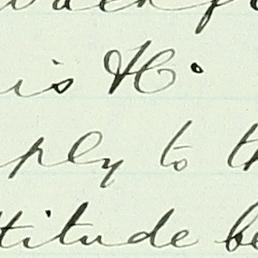 is H.
ply to th
titude be